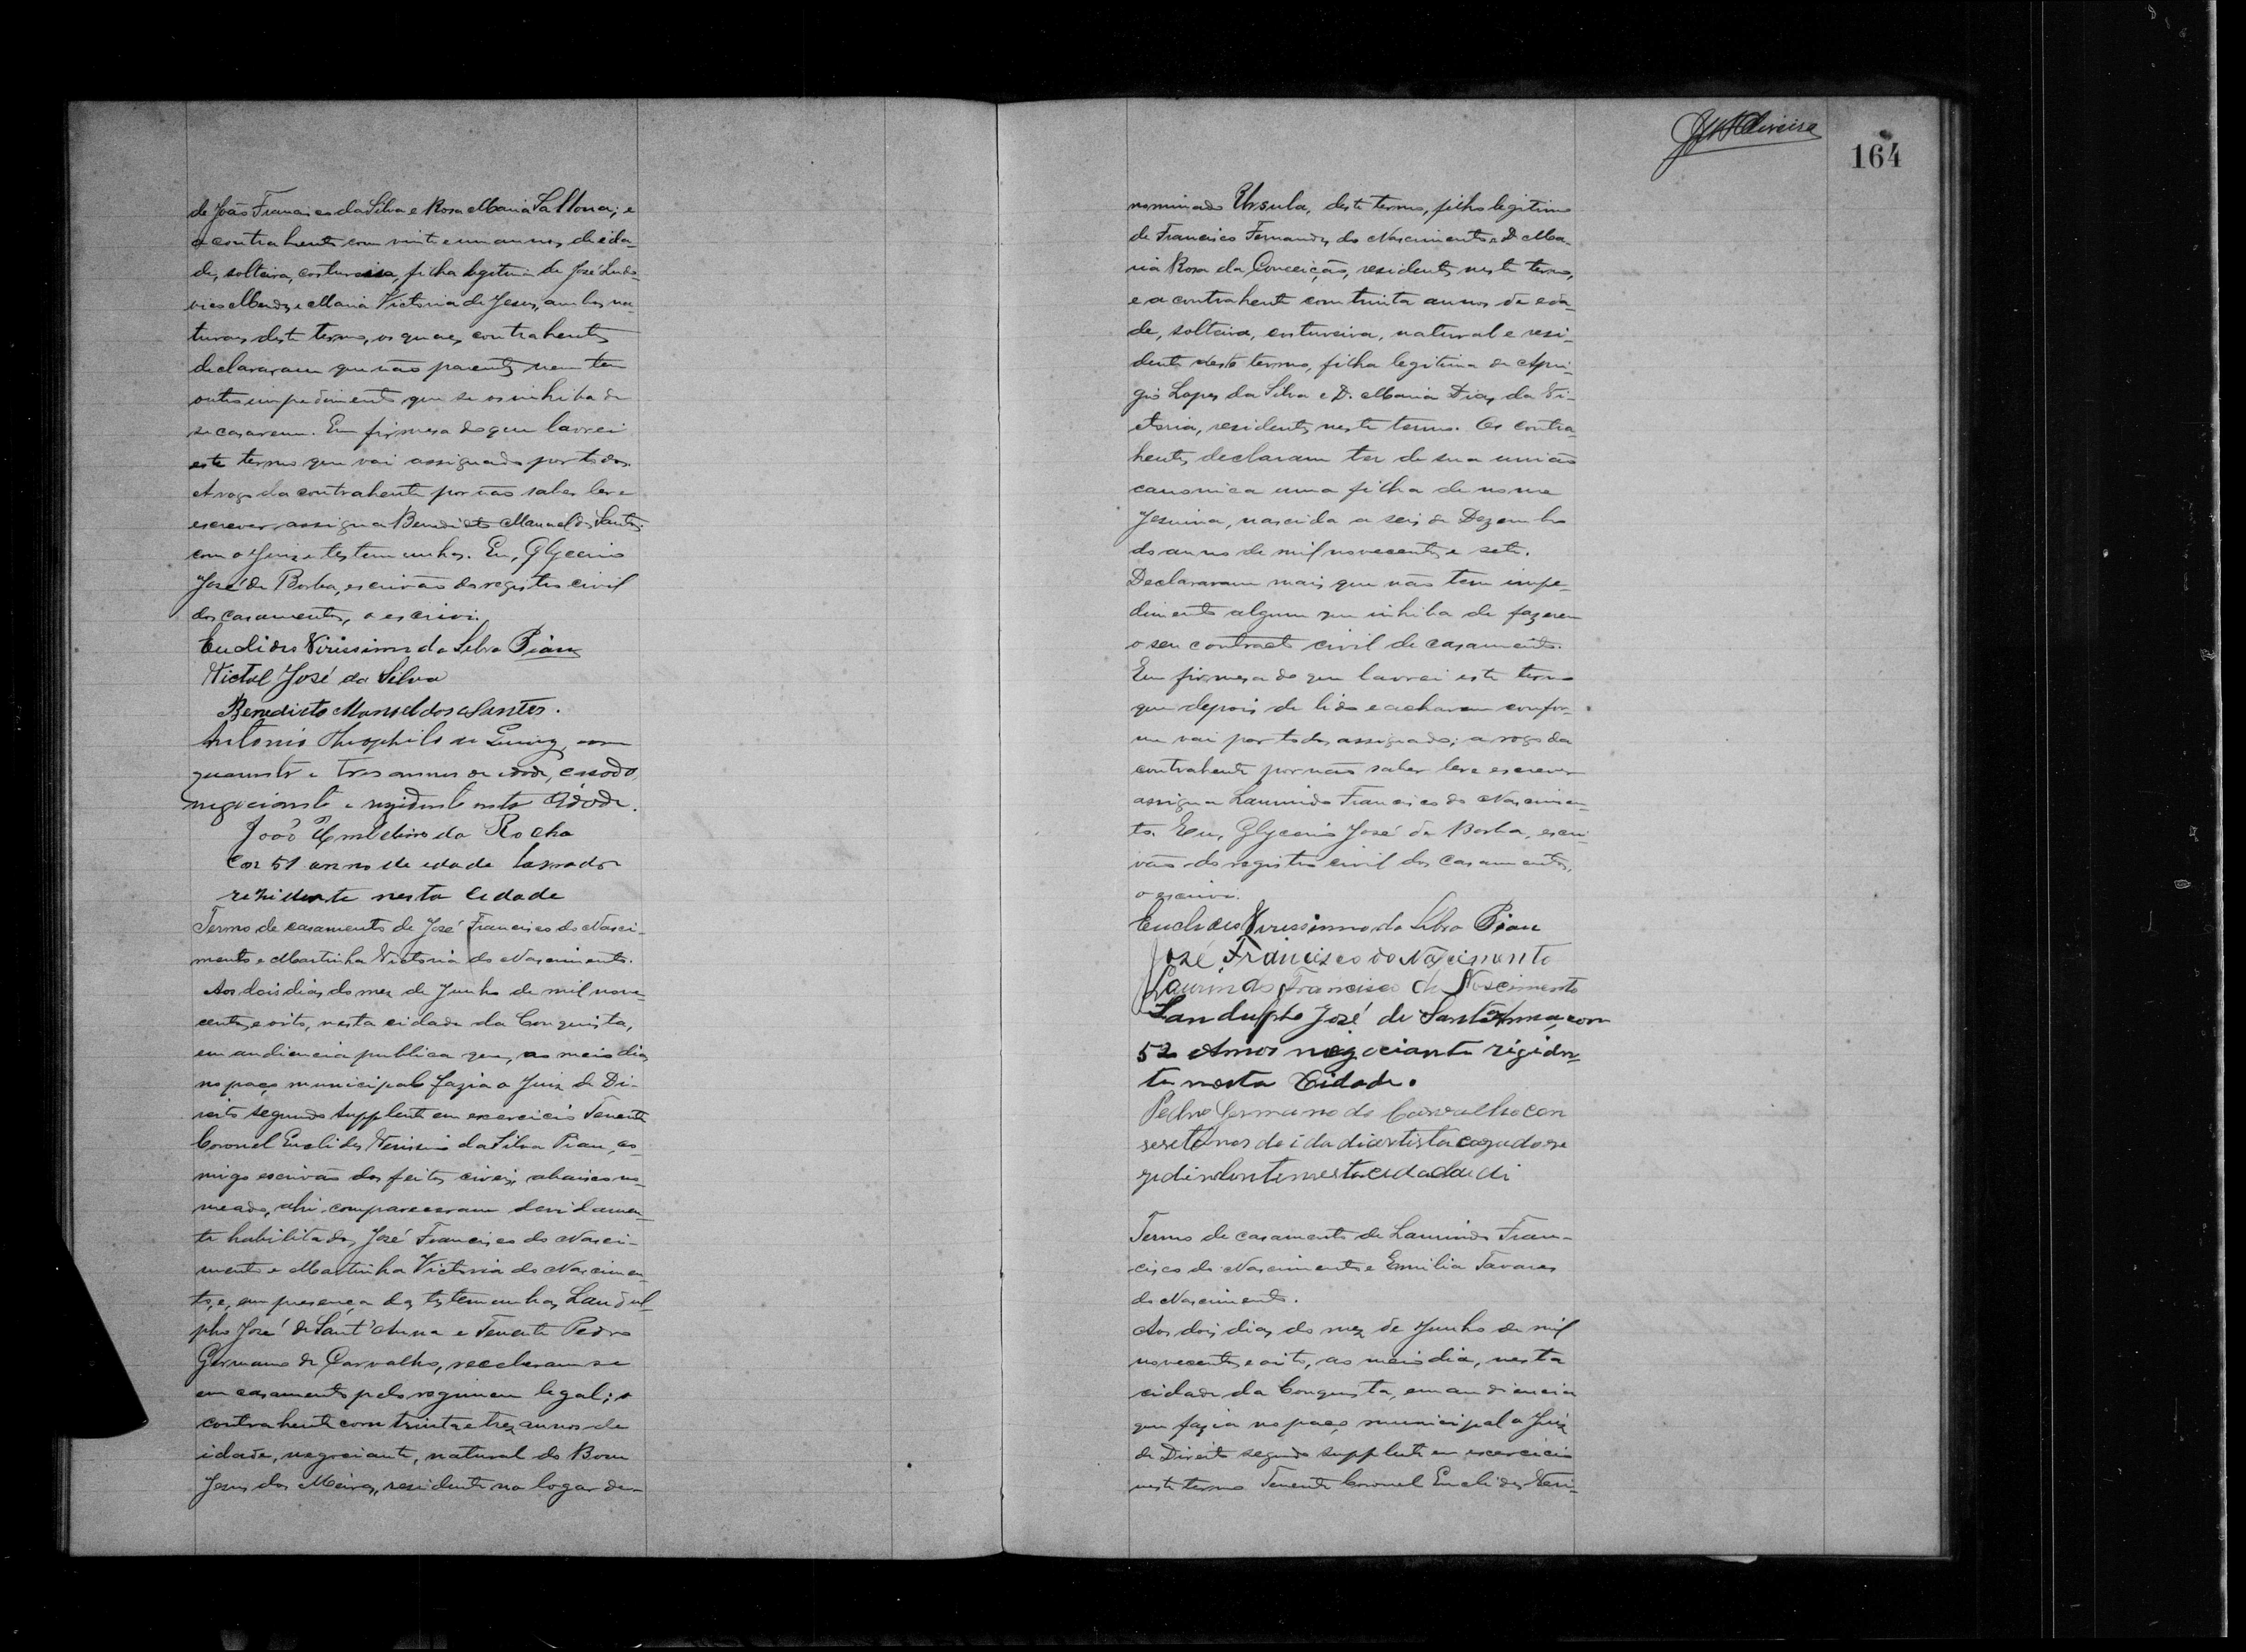 de João Francisco da Silva e Rosa Maria; e
a contrahente com vinte e um annos de ida-
de, solteira, costureira, filha legitima de José Ludo-
vico Mendes e Maria Victoria de Jesus, ambos na-
turaes deste termo, os quaes contrahentes
declararam que não parentes nem tem
outro impedimento que se os inhiba de
se casarem. Em firmesa do que lavrei
este termo que vai assignado por todos.
A rogo da contrahente por não saber ler e
escrever, assigna Benedicto Manuel dos Santos
com o Juiz e testemunhas. Eu, Glycerio
José de Borba, escrivão do registro civil
dos casamentos, o escrivi.
Euclides Virissimo da Silva Piau
Victol José da Silva
Benedicto Manoel dos Santos.
Antonio Theophilo de com
quarenta e tres annos de idade, casado
negociante e rezidente nesta Cidade.
João da Rocha
Con 51 annos de idade lavrador
rezidente nesta Cidade
Termo de casamento de José Francisco do Nasci-
mento e Martinha Victoria do Nascimento.
Aos dois dias do mez de Junho de mil nove-
centos e oito, nesta cidade da Conquista,
em audiencia publica que, ao meio dia,
no paço municipal fazia o Juiz de Di-
reito segundo supplente em excercicio Tenente
Coronel Euclides Verissimo da Silva Piau, co-
migo escrivão dos feitos civeis, abaixo no-
meado, ahi compareceram devidamen-
te habilitados José Francisco do Nasci-
mento e Martinha Victoria do Nascimen-
to, e, em presença das testemunhas Landul-
pho José de Sant'Anna e Tenente Pedro
Germano de Carvalho, receberam-se
em casamento pelo regimen legal; o
contrahente com trinta e trez annos de
idade, negociante, natural do Bom
Jesus dos Meiras, residente no logar de-
164
nominado Ursula, deste termo, filho legitimo
de Francisco Fernandes do Nascimento e D. Ma-
ria Rosa da Conceição, residentes neste termo,
e a contrahente com trinta annos de eda-
de, solteira, costureira, natural e resi-
dente neste termo, filha legitima de Apri-
gio Lopes da Silva e D. Maria Dias da Vi-
ctoria, residentes neste termo. Os contra-
hentes declaram ter de sua união
canonica uma filha de nome
Jesuina, nascida a seis de Dezembro
do anno de mil novecentos e sete.
Declararam mais que não tem impe-
dimento algum que inhiba de fazerem
o seu contracto civil de casamento.
Em firmesa do que lavrei este termo
que depois de lido e acharem confor-
me vai por todos assignado; a rogo da
contrahente por não saber ler e escrever
assigna Laurindo Francisco do Nascimen-
to. Eu, Glycerio José de Borba, escri-
vão do registro civil dos casamentos,
o escrivi.
Euclides Virissimo da Silva Piau
José Francisco do Nascimento
Laurindo Francisco do Nascimento
Landulpho José de Santanna, com
52 Annos negociante rizidn-
te nesta Cidade.
Pedro Germano de Carvalho con
artista cazado
Termo de casamento de Laurindo Fran-
cisco do Nascimento e Emilia Tavares
do Nascimento.
Aos dois dias do mez de Junho de mil
novecentos e oito, ao meio dia, nesta
cidade da Conquista, em audiencia
que fazia no paço municipal o Juiz
de Direito segundo supplente em excercicio
neste termo Tenente Coronel Euclides Veri-